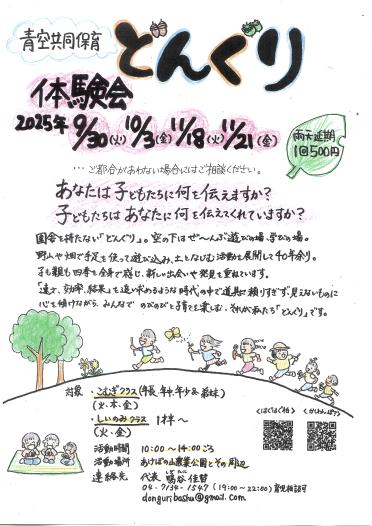 青空共同保育 どんぐり
体験会
2025年 9/30(火) 10/3(金) 11/18(火) 11/21(金)
雨天延期
1回500円
…ご都合があわない場合にはご相談ください。
あなたは子どもたちに何を伝えますか?
子どもたちはあなたに何を伝えてくれていますか?
園舎を持たない「どんぐり」。空の下はぜ〜んぶ遊びの場、学びの場。
野山や畑で手足を使って遊び込み、土となじむ活動を展開して40年余り。
子も親も四季を全身で感じ、新しい出会いや発見を重ねています。
「速さ、効率、結果」を追い求めるような時代の中で道具に頼りすぎず、見えないものに
心を傾けながら、みんなで のびのびと子育てを楽しむ、それが私たち「どんぐり」です。
対象・こむぎクラス(年長年中年少&弟妹)
(火・木・金)
・しいのみクラス 1才〜
(火・金)
活動時間 10:00〜14:00ごろ
活動場所 あけぼの山農業公園とその周辺
連絡先 代表 鴨谷佳賛
04-7134-1547 (19:00〜22:00) 育児相談可
donguriboshu@gmail.com